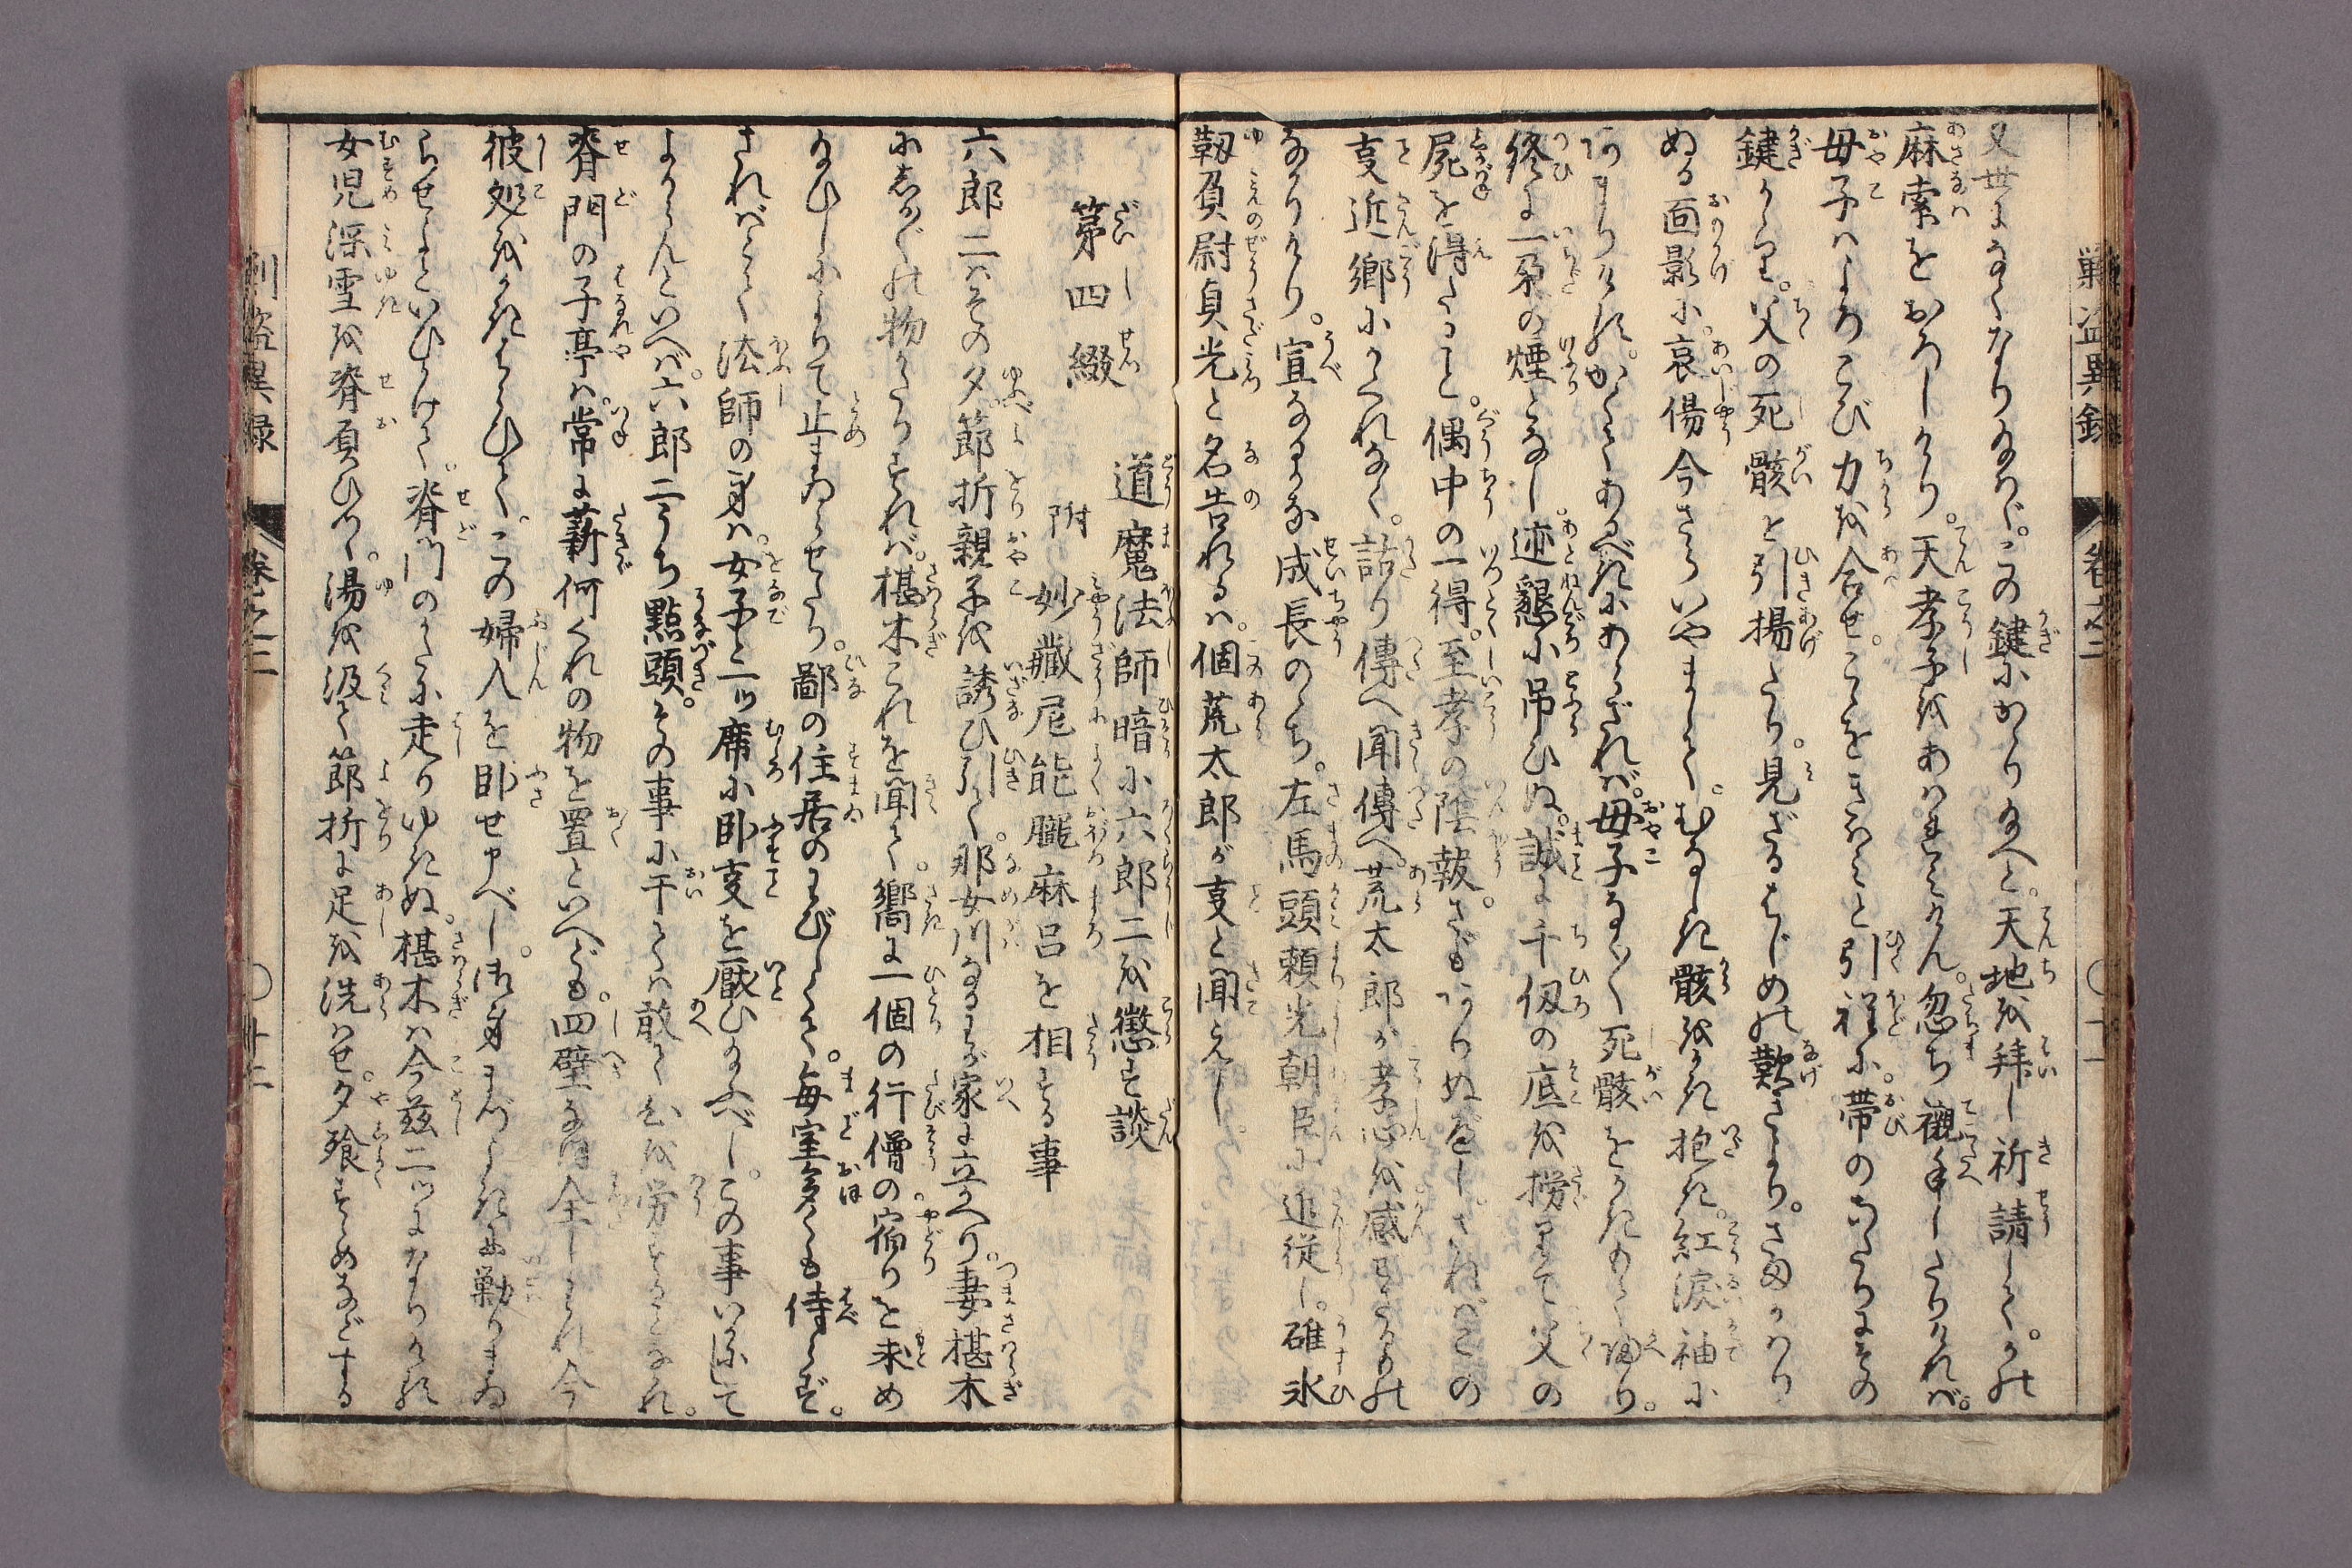 又世になくなり給はゞ。この鍵にかゝり給へと。天地を拝し祈請しつゝ。かの
麻索をおろしけり。天孝子をあはれみけん。忽ち襯手したりければ。
母子はよろこび力を合せ。こゝをきはみと引程に。帯のあたりにその
鍵かゝり。父の死骸を引揚たり。見ざるはじめの歎きより。さまかはり
ぬる面影に。哀傷今さらいやまして。むなしき骸をかき抱き。紅涙袖に
あまりけれ。かくてあるべきにあらざれば。母子なく〳〵死骸をかきもて帰り。
終に一朶の煙となし。迹懇に吊ひぬ。誠に千仭の底を撈りて父の
屍を得たること。偶中の一得。至孝の陰報。さもありぬべし。されはこの
事近郷にかくれなく。語り傳へ聞傳へ。荒太郎が孝心を感ぜざるもの
なかりけり。宣なるかな成長のゝち。左馬頭頼光朝臣に追従し。碓氷
靱負尉貞光と名告れるは。個荒太郎が事と聞えし。
第四綴 道魔法師暗に六郎二を懲す談
附 妙藏尼能朧麻呂を相する事
六郎二はその夕。節折親子を誘ひ引て。那女川なるわが家に立かへり。妻椹木
にしか〴〵の物かたりすれば。椹木これを聞て。嚮に一個の行僧の宿りを求め
給ひしによりて止まゐらせたり。鄙の住居のわびしくて。毎室多くも侍らず。
さればとて法師の身は。女子と二ッ席に卧事を厭ひ給ふべし。この事いかにして
よからんといへば。六郎二うち點頭。その事に于ては敢て心を労することなかれ。
脊門の子亭は。常に薪何くれの物を置といへども。四壁なほ全しかれ今
彼処をかきはらひて。この婦人を卧せ申べし。御身まづよきに勦りまゐ
らせよといひかけて。脊門のかたに走りゆきぬ。椹木は今茲二ッになりける
女児深雪を脊負ひつゝ。湯を汲て節折に足を洗はせ。夕飱すゝめなどする
巻之三